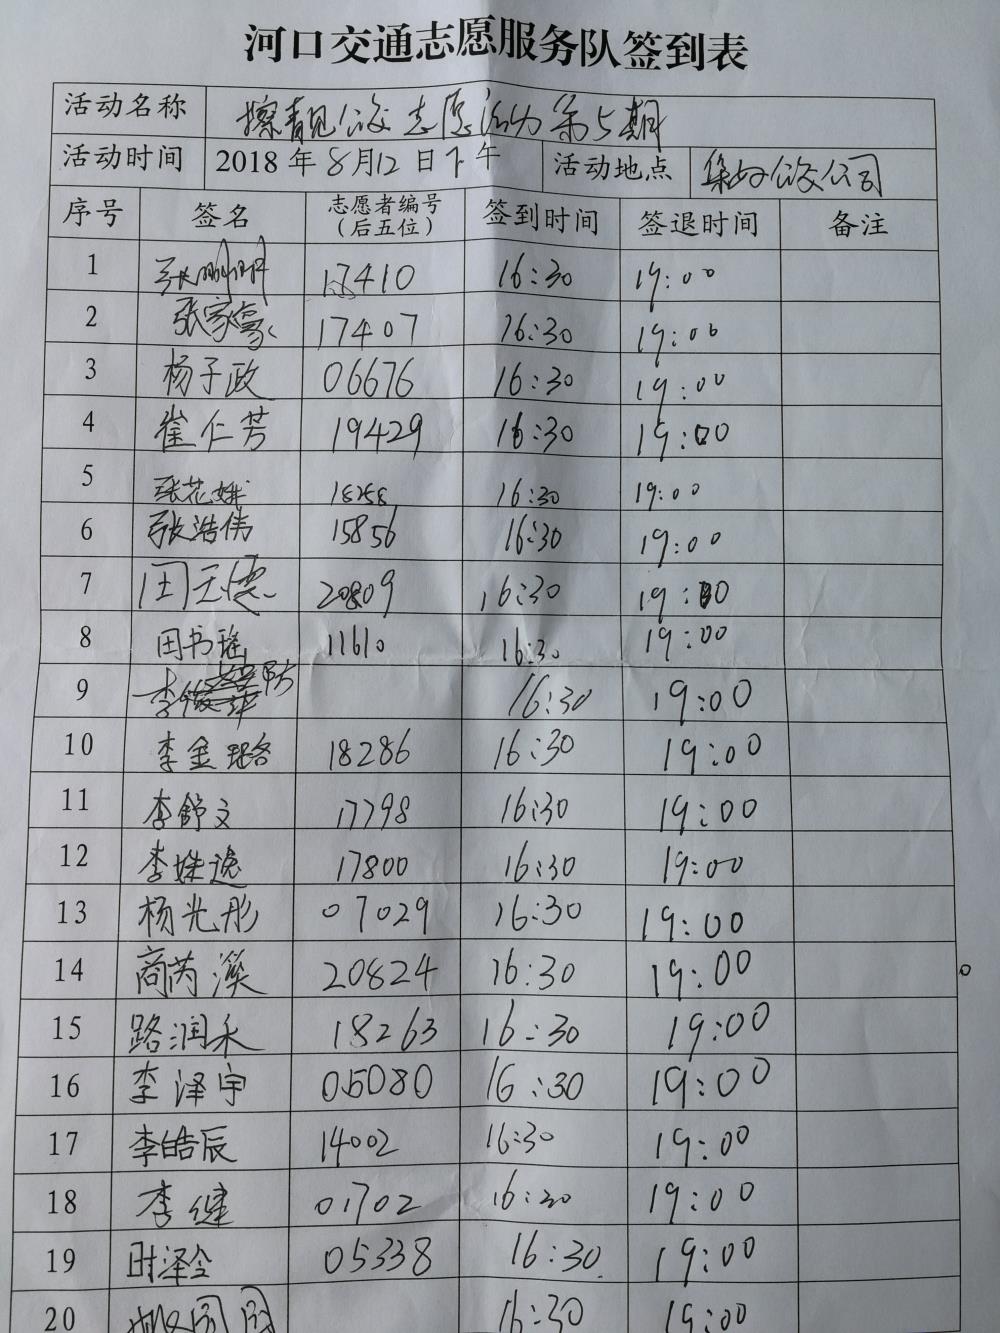 河口交通志愿服务队签到表
活动名称 擦靓公交志愿活动第5期
活动时间 2018年8月12日下午 活动地点 公交公司
序号 签名 志愿者编号（后五位） 签到时间 签退时间 备注
1 张明明 17410 16:30 19:00
2 张家豪 17407 16:30 19:00
3 杨子政 06676 16:30 19:00
4 崔仁芳 19429 16:30 19:00
5 张花娥 18258 16:30 19:00
6 张浩伟 15856 16:30 19:00
7 田玉德 20809 16:30 19:00
8 田书瑶 11610 16:30 19:00
9 李 16:30 19:00
10 李金璐 18286 16:30 19:00
11 李舒文 17798 16:30 19:00
12 李姝逸 17800 16:30 19:00
13 杨光彤 07029 16:30 19:00
14 商芮溪 20824 16:30 19:00
15 路润禾 18263 16:30 19:00
16 李泽宇 05080 16:30 19:00
17 李皓辰 14002 16:30 19:00
18 李健 01702 16:30 19:00
19 时泽全 05338 16:30 19:00
20 16:30 19:00